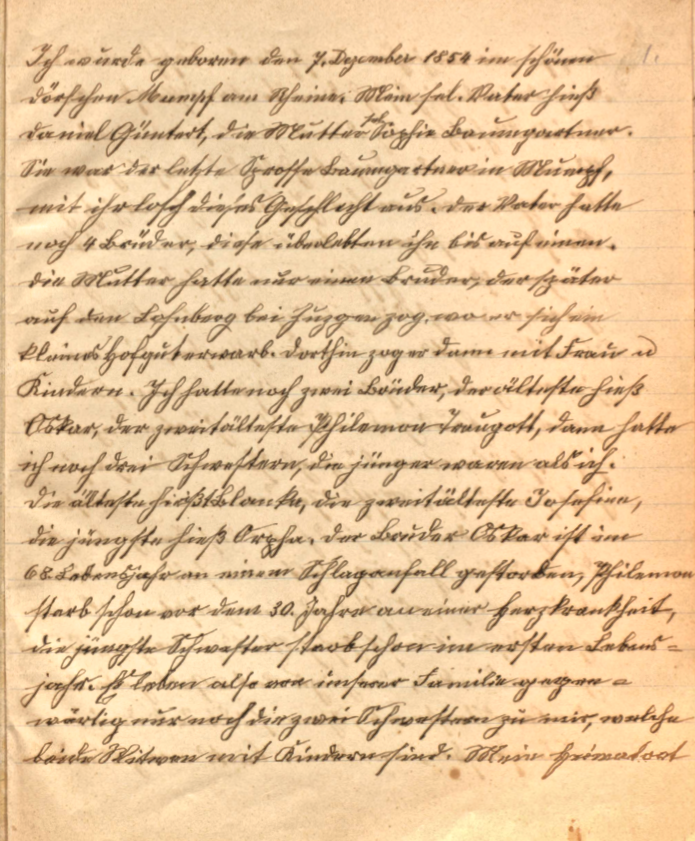 1.
Ich wurde geboren den 7. Dezember 1854 im schönen
Dörfchen Mumpf am Rheine. Mein sel. Vater hieß
Daniel Güntert, die Mutter sel. Sophie Baumgartner.
Sie war der letzte Sprosse Baumgartner in Mumpf,
mit ihr losch dieses Geschlecht aus. Der Vater hatte
noch 4 Brüder, diese überlebten ihn bis auf einen.
Die Mutter hatte nur einen Bruder, der später
auf den Lohnberg bei Zuzgen zog, wo er sich ein
kleines Hofgut erwarb. Dorthin zog er dann mit Frau u
Kindern. Ich hatte noch zwei Brüder, der älteste hieß
Oskar, der zweitälteste Philemon Traugott, dann hatte
ich noch drei Schwestern, die jünger waren als ich.
Die älteste hießt Blanka, die zweitälteste Josefine,
die jüngste hieß Orpha. Der Bruder Oskar ist im
68. Lebensjahr an einem Schlaganfall gestorben, Philemon
starb schon vor dem 30. Jahre an einer Herzkrankheit,
die jüngste Schwester starb schon im ersten Lebens=
jahr. Es leben also von unserer Familie gegen=
wärtig nur noch die zwei Schwestern zu mir, welche
beide Witwen mit Kindern sind. Mein Heimatort